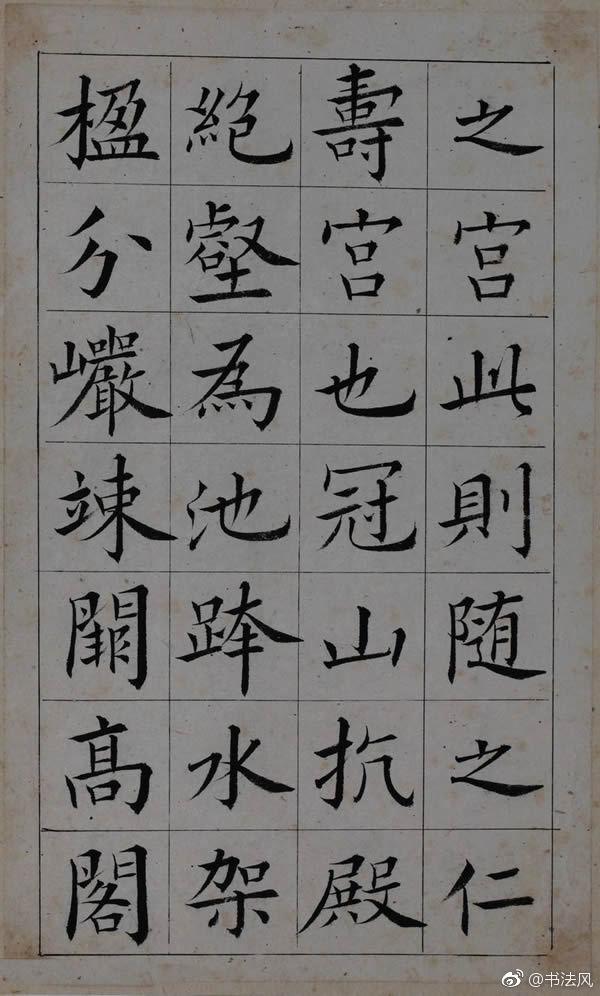 之宫此則随之仁
壽宫也冠山抗殿
絶壑為池跨水架
楹分巖竦闕高閣
@书法风